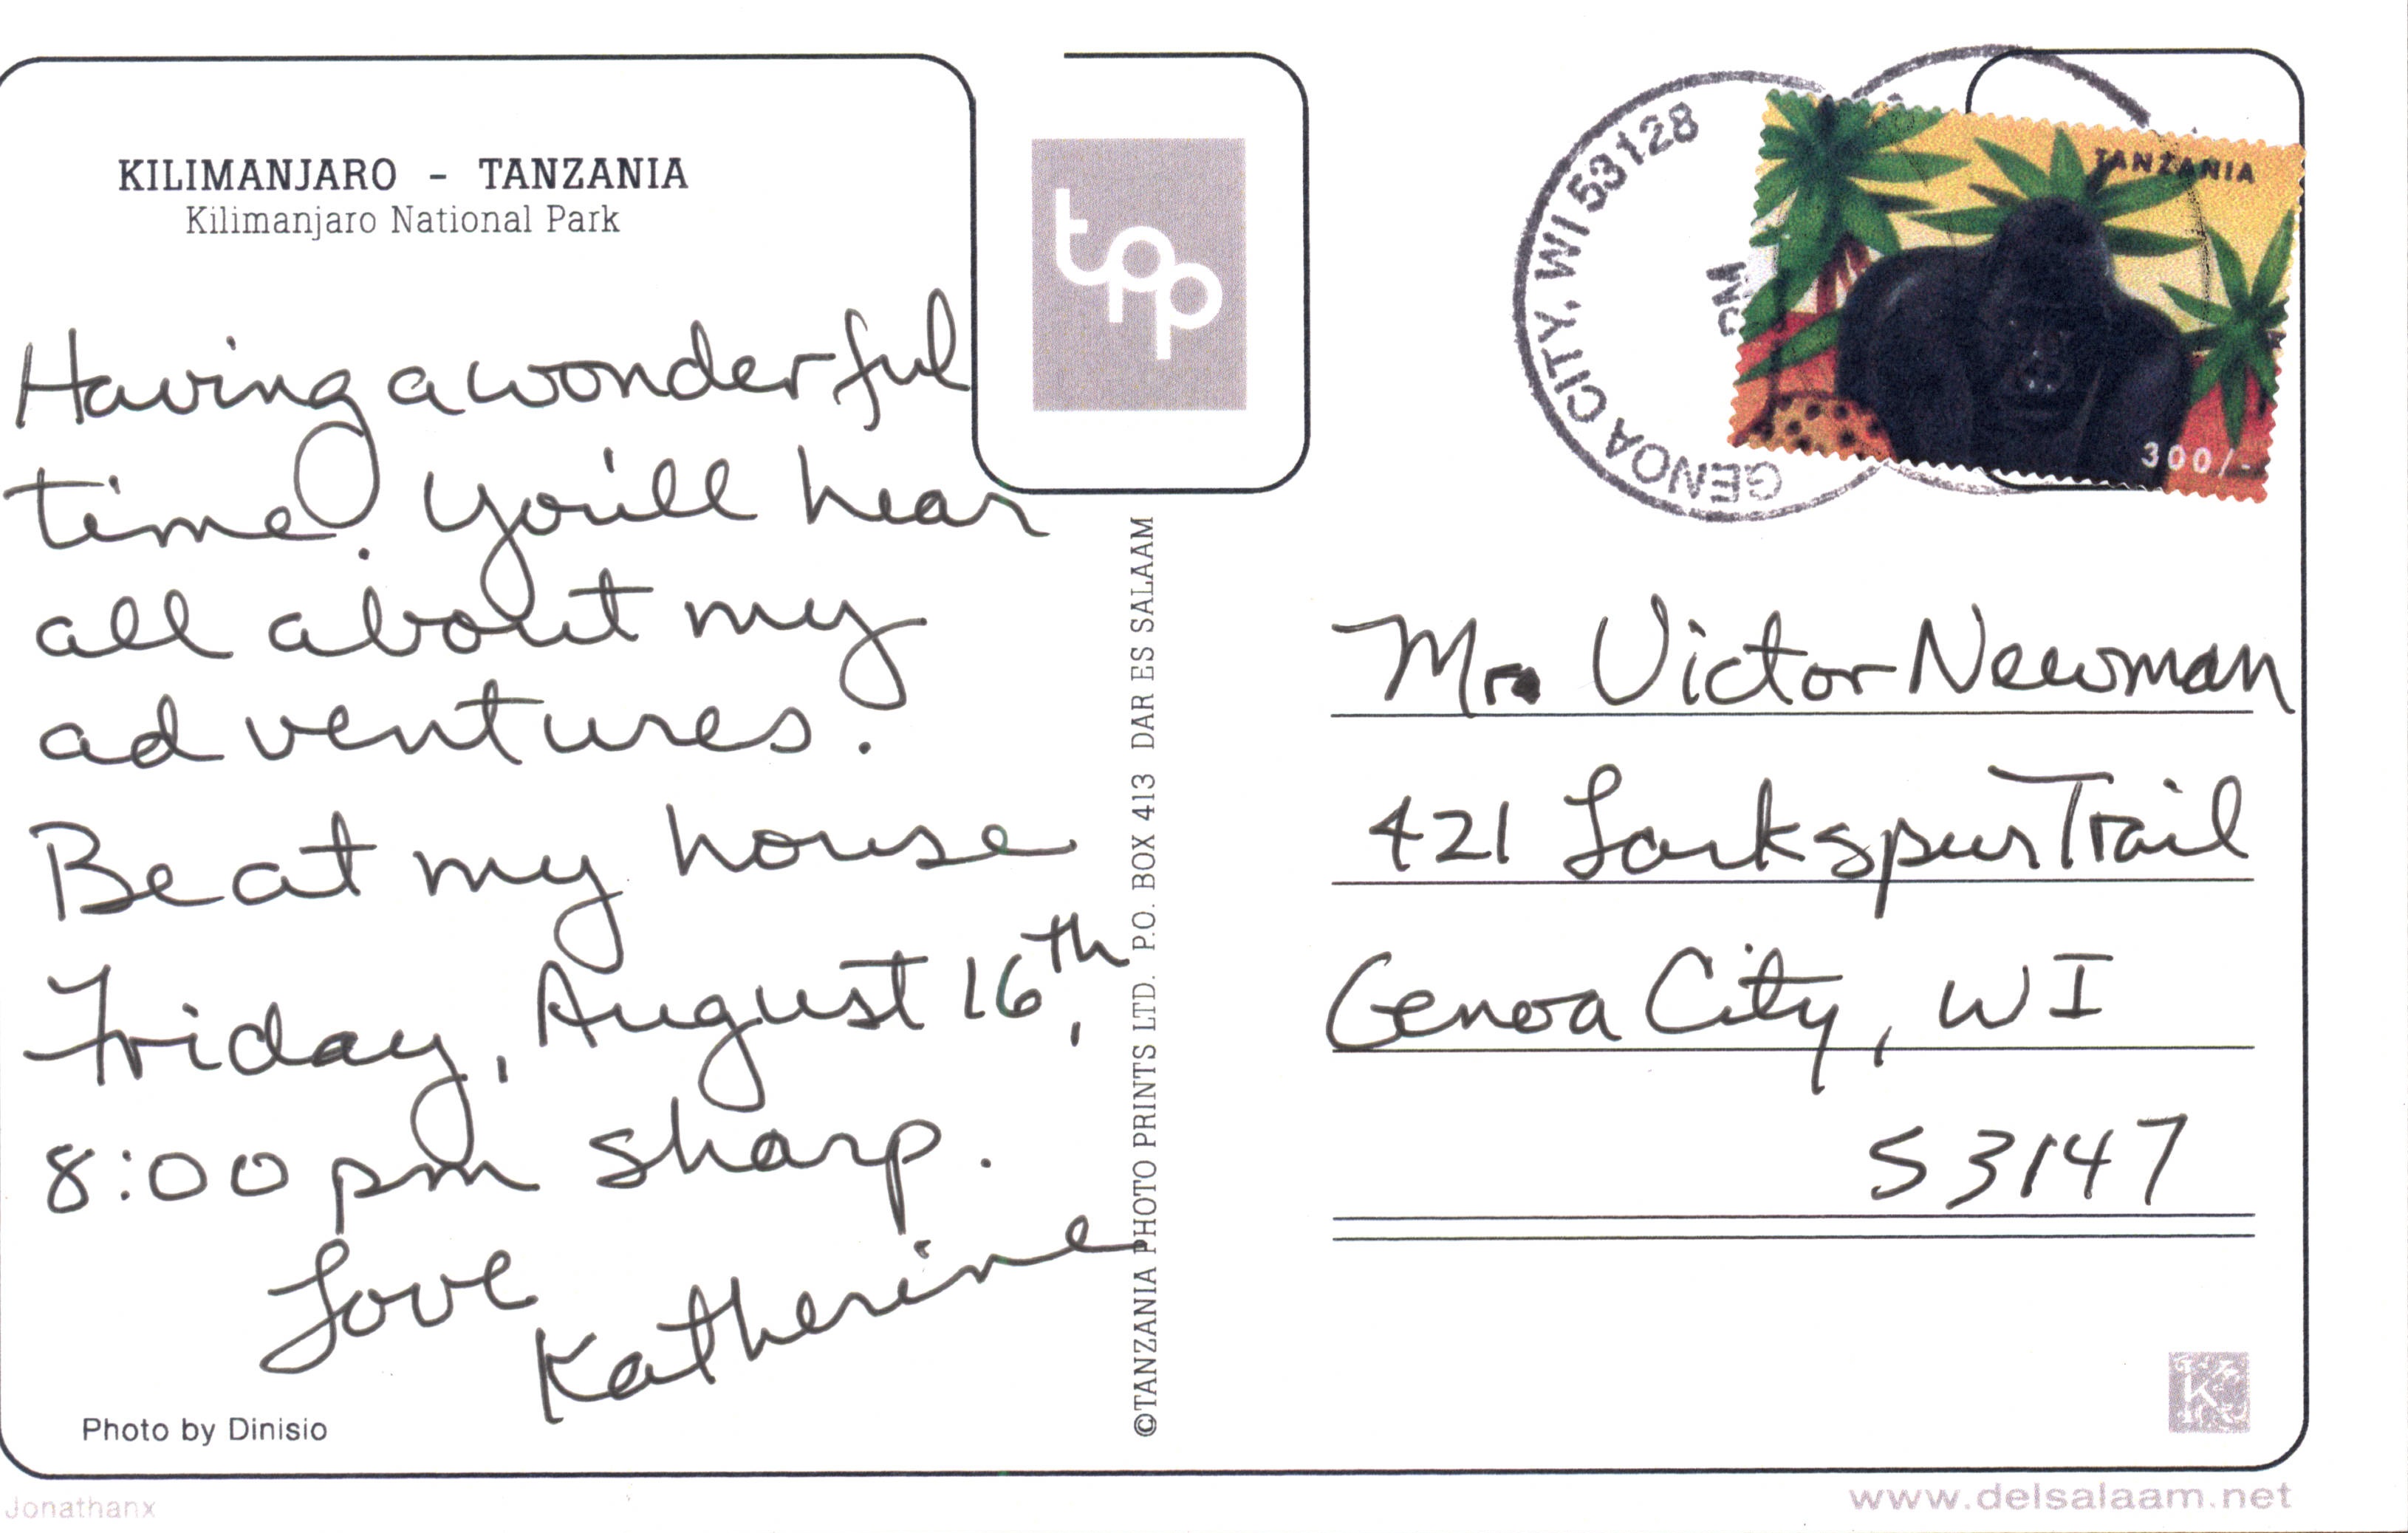 KILIMANJARO - TANZANIA
Kilimanjaro National Park
Having a wonderful
time. You'll hear
all about my
adventures.
Be at my house
Friday, August 16th,
8:00 pm sharp.
Love
Katherine
Photo by Dinisio
Jonathanx
tpp
©TANZANIA PHOTO PRINTS LTD. P.O. BOX 413 DAR ES SALAAM
GENOA CITY, WI 53128
PM
TANZANIA
300/-
Mr. Victor Newman
421 Larkspur Trail
Genoa City, WI
53147
K
www.delsalaam.net